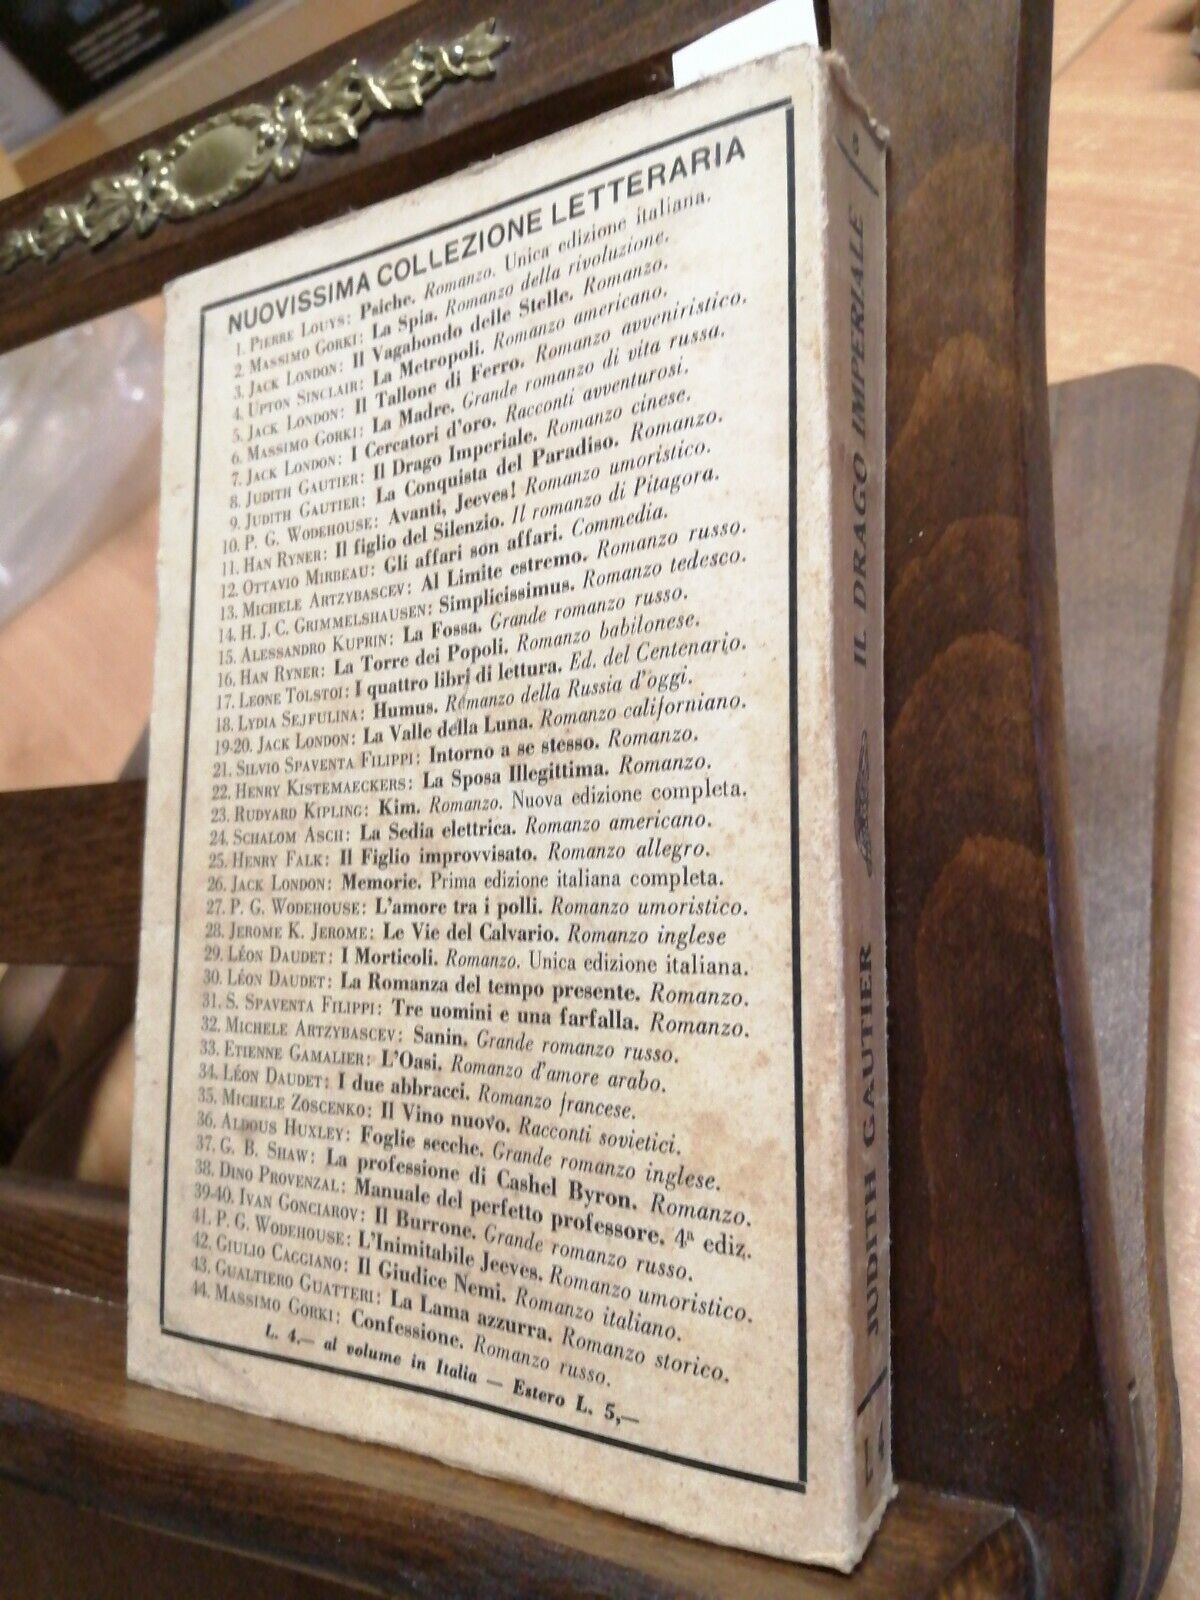 NUOVISSIMA COLLEZIONE LETTERARIA
1. PIERRE LOUYS: Psiche. Romanzo. Unica edizione italiana.
2. MASSIMO GORKI: La Spia. Romanzo della rivoluzione.
3. JACK LONDON: Il Vagabondo delle Stelle. Romanzo.
4. UPTON SINCLAIR: La Metropoli. Romanzo americano.
5. JACK LONDON: Il Tallone di Ferro. Romanzo avveniristico.
6. MASSIMO GORKI: La Madre. Grande romanzo di vita russa.
7. JACK LONDON: I Cercatori d'oro. Racconti avventurosi.
8. JUDITH GAUTIER: Il Drago Imperiale. Romanzo cinese.
9. JUDITH GAUTIER: La Conquista del Paradiso. Romanzo.
10. P. G. WODEHOUSE: Avanti, Jeeves! Romanzo umoristico.
11. HAN RYNER: Il figlio del Silenzio. Il romanzo di Pitagora.
12. OTTAVIO MIRBEAU: Gli affari son affari. Commedia.
13. MICHELE ARTZYBASCEV: Al Limite estremo. Romanzo russo.
14. H. J. C. GRIMMELSHAUSEN: Simplicissimus. Romanzo tedesco.
15. ALESSANDRO KUPRIN: La Fossa. Grande romanzo russo.
16. HAN RYNER: La Torre dei Popoli. Romanzo babilonese.
17. LEONE TOLSTOI: I quattro libri di lettura. Ed. del Centenario.
18. LYDIA SEJFULINA: Humus. Romanzo della Russia d'oggi.
19-20. JACK LONDON: La Valle della Luna. Romanzo californiano.
21. SILVIO SPAVENTA FILIPPI: Intorno a se stesso. Romanzo.
22. HENRY KISTEMAECKERS: La Sposa Illegittima. Romanzo.
23. RUDYARD KIPLING: Kim. Romanzo. Nuova edizione completa.
24. SCHALOM ASCH: La Sedia elettrica. Romanzo americano.
25. HENRY FALK: Il Figlio improvvisato. Romanzo allegro.
26. JACK LONDON: Memorie. Prima edizione italiana completa.
27. P. G. WODEHOUSE: L'amore tra i polli. Romanzo umoristico.
28. JEROME K. JEROME: Le Vie del Calvario. Romanzo inglese
29. LÉON DAUDET: I Morticoli. Romanzo. Unica edizione italiana.
30. LÉON DAUDET: La Romanza del tempo presente. Romanzo.
31. S. SPAVENTA FILIPPI: Tre uomini e una farfalla. Romanzo.
32. MICHELE ARTZYBASCEV: Sanin. Grande romanzo russo.
33. ETIENNE GAMALIER: L'Oasi. Romanzo d'amore arabo.
34. LÉON DAUDET: I due abbracci. Romanzo francese.
35. MICHELE ZOSCENKO: Il Vino nuovo. Racconti sovietici.
36. ALDOUS HUXLEY: Foglie secche. Grande romanzo inglese.
37. G. B. SHAW: La professione di Cashel Byron. Romanzo.
38. DINO PROVENZAL: Manuale del perfetto professore. 4ª ediz.
39-40. IVAN GONCIAROV: Il Burrone. Grande romanzo russo.
41. P. G. WODEHOUSE: L'Inimitabile Jeeves. Romanzo umoristico.
42. GIULIO CAGGIANO: Il Giudice Nemi. Romanzo italiano.
43. GUALTIERO GUATTERI: La Lama azzurra. Romanzo storico.
44. MASSIMO GORKI: Confessione. Romanzo russo.
L. 4,— al volume in Italia — Estero L. 5,—
JUDITH GAUTIER IL DRAGO IMPERIALE 8